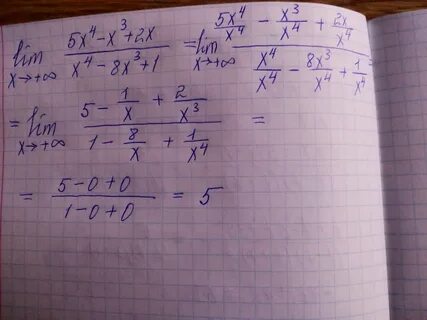 lim x→+∞ (5x⁴ - x³ + 2x)/(x⁴ - 8x³ + 1) = lim x→+∞ (5x⁴/x⁴ - x³/x⁴ + 2x/x⁴)/(x⁴/x⁴ - 8x³/x⁴ + 1/x⁴)
= lim x→+∞ (5 - 1/x + 2/x³)/(1 - 8/x + 1/x⁴) =
= (5 - 0 + 0)/(1 - 0 + 0) = 5